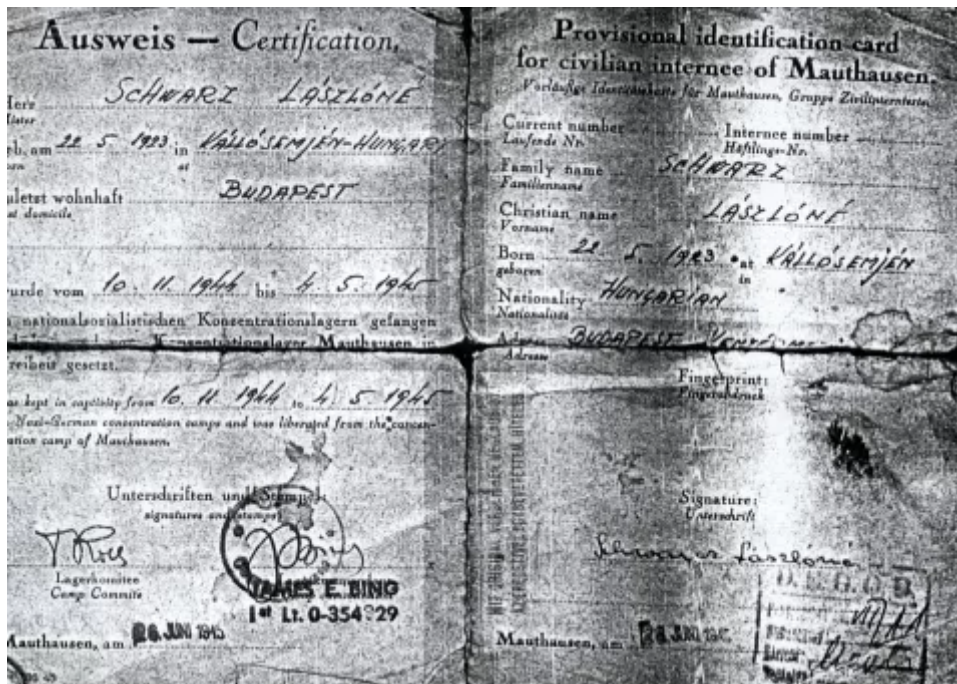 Ausweis — Certification.
Herr SCHWARZ LÁSZLÓNÉ
Mister
geb. am 22 5 1923 in KÁLLÓSEMJÉN-HUNGARY
born at
zuletzt wohnhaft BUDAPEST
last domicile
wurde vom 10. 11. 1944 bis 4. 5. 1945
in nationalsozialistischen Konzentrationslagern gefangen
Konzentrationslager Mauthausen in
Freiheit gesetzt.
was kept in captivity from 10. 11. 1944 to 4. 5 1945
in Nazi-German concentration camps and was liberated from the concen-
tration camp of Mauthausen.
Unterschriften und Stempel:
signatures and stamps
Lagerkomitee
Camp Commite
JAMES E. BING
1st Lt. 0-354 29
Mauthausen, am 28. JUNI 1945
Provisional identification card
for civilian internee of Mauthausen.
Vorläufige Identitätskarte für Mauthausen, Gruppe Zivilinternierte.
Current number Internee number
Laufende Nr. Häftlings-Nr.
Family name SCHWARZ
Familienname
Christian name LÁSZLÓNÉ
Vorname
Born 22 5. 1923 at KÁLLÓSEMJÉN
geboren in
Nationality HUNGARIAN
Nationalität
Adress BUDAPEST
Adresse
Fingerprint:
Fingerabdruck
Signature:
Unterschrift
Schwarz Lászlóné
D.E.G.O.B.
Mauthausen, am 28. JUNI